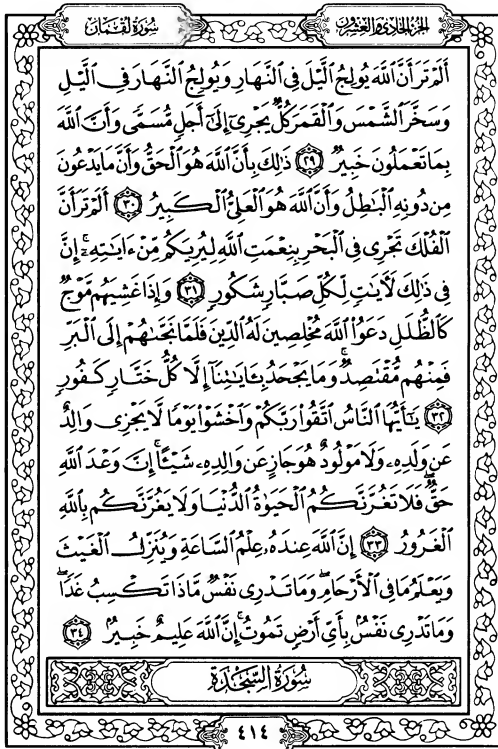 سُورَةُ لُقۡمَانَ
الجُزۡءُ الحَادِي وَالعِشۡرُون
أَلَمۡ تَرَ أَنَّ ٱللَّهَ يُولِجُ ٱلَّيۡلَ فِي ٱلنَّهَارِ وَيُولِجُ ٱلنَّهَارَ فِي ٱلَّيۡلِ
وَسَخَّرَ ٱلشَّمۡسَ وَٱلۡقَمَرَ كُلّٞ يَجۡرِيٓ إِلَىٰٓ أَجَلٖ مُّسَمّٗى وَأَنَّ ٱللَّهَ
بِمَا تَعۡمَلُونَ خَبِيرٞ ٢٩ ذَٰلِكَ بِأَنَّ ٱللَّهَ هُوَ ٱلۡحَقُّ وَأَنَّ مَا يَدۡعُونَ
مِن دُونِهِ ٱلۡبَٰطِلُ وَأَنَّ ٱللَّهَ هُوَ ٱلۡعَلِيُّ ٱلۡكَبِيرُ ٣٠ أَلَمۡ تَرَ أَنَّ
ٱلۡفُلۡكَ تَجۡرِي فِي ٱلۡبَحۡرِ بِنِعۡمَتِ ٱللَّهِ لِيُرِيَكُم مِّنۡ ءَايَٰتِهِۦٓۚ إِنَّ
فِي ذَٰلِكَ لَأٓيَٰتٖ لِّكُلِّ صَبَّارٖ شَكُورٖ ٣١ وَإِذَا غَشِيَهُم مَّوۡجٞ
كَٱلظُّلَلِ دَعَوُاْ ٱللَّهَ مُخۡلِصِينَ لَهُ ٱلدِّينَ فَلَمَّا نَجَّىٰهُمۡ إِلَى ٱلۡبَرِّ
فَمِنۡهُم مُّقۡتَصِدٞۚ وَمَا يَجۡحَدُ بِـَٔايَٰتِنَآ إِلَّا كُلُّ خَتَّارٖ كَفُورٖ
٣٢ يَٰٓأَيُّهَا ٱلنَّاسُ ٱتَّقُواْ رَبَّكُمۡ وَٱخۡشَوۡاْ يَوۡمٗا لَّا يَجۡزِي وَالِدٌ
عَن وَلَدِهِۦ وَلَا مَوۡلُودٌ هُوَ جَازٍ عَن وَالِدِهِۦ شَيۡـًٔاۚ إِنَّ وَعۡدَ ٱللَّهِ
حَقّٞۖ فَلَا تَغُرَّنَّكُمُ ٱلۡحَيَوٰةُ ٱلدُّنۡيَا وَلَا يَغُرَّنَّكُم بِٱللَّهِ
ٱلۡغَرُورُ ٣٣ إِنَّ ٱللَّهَ عِندَهُۥ عِلۡمُ ٱلسَّاعَةِ وَيُنَزِّلُ ٱلۡغَيۡثَ
وَيَعۡلَمُ مَا فِي ٱلۡأَرۡحَامِۖ وَمَا تَدۡرِي نَفۡسٞ مَّاذَا تَكۡسِبُ غَدٗاۖ
وَمَا تَدۡرِي نَفۡسُۢ بِأَيِّ أَرۡضٖ تَمُوتُۚ إِنَّ ٱللَّهَ عَلِيمٌ خَبِيرُۢ ٣٤
سُورَةُ السَّجۡدَةِ
٤١٤